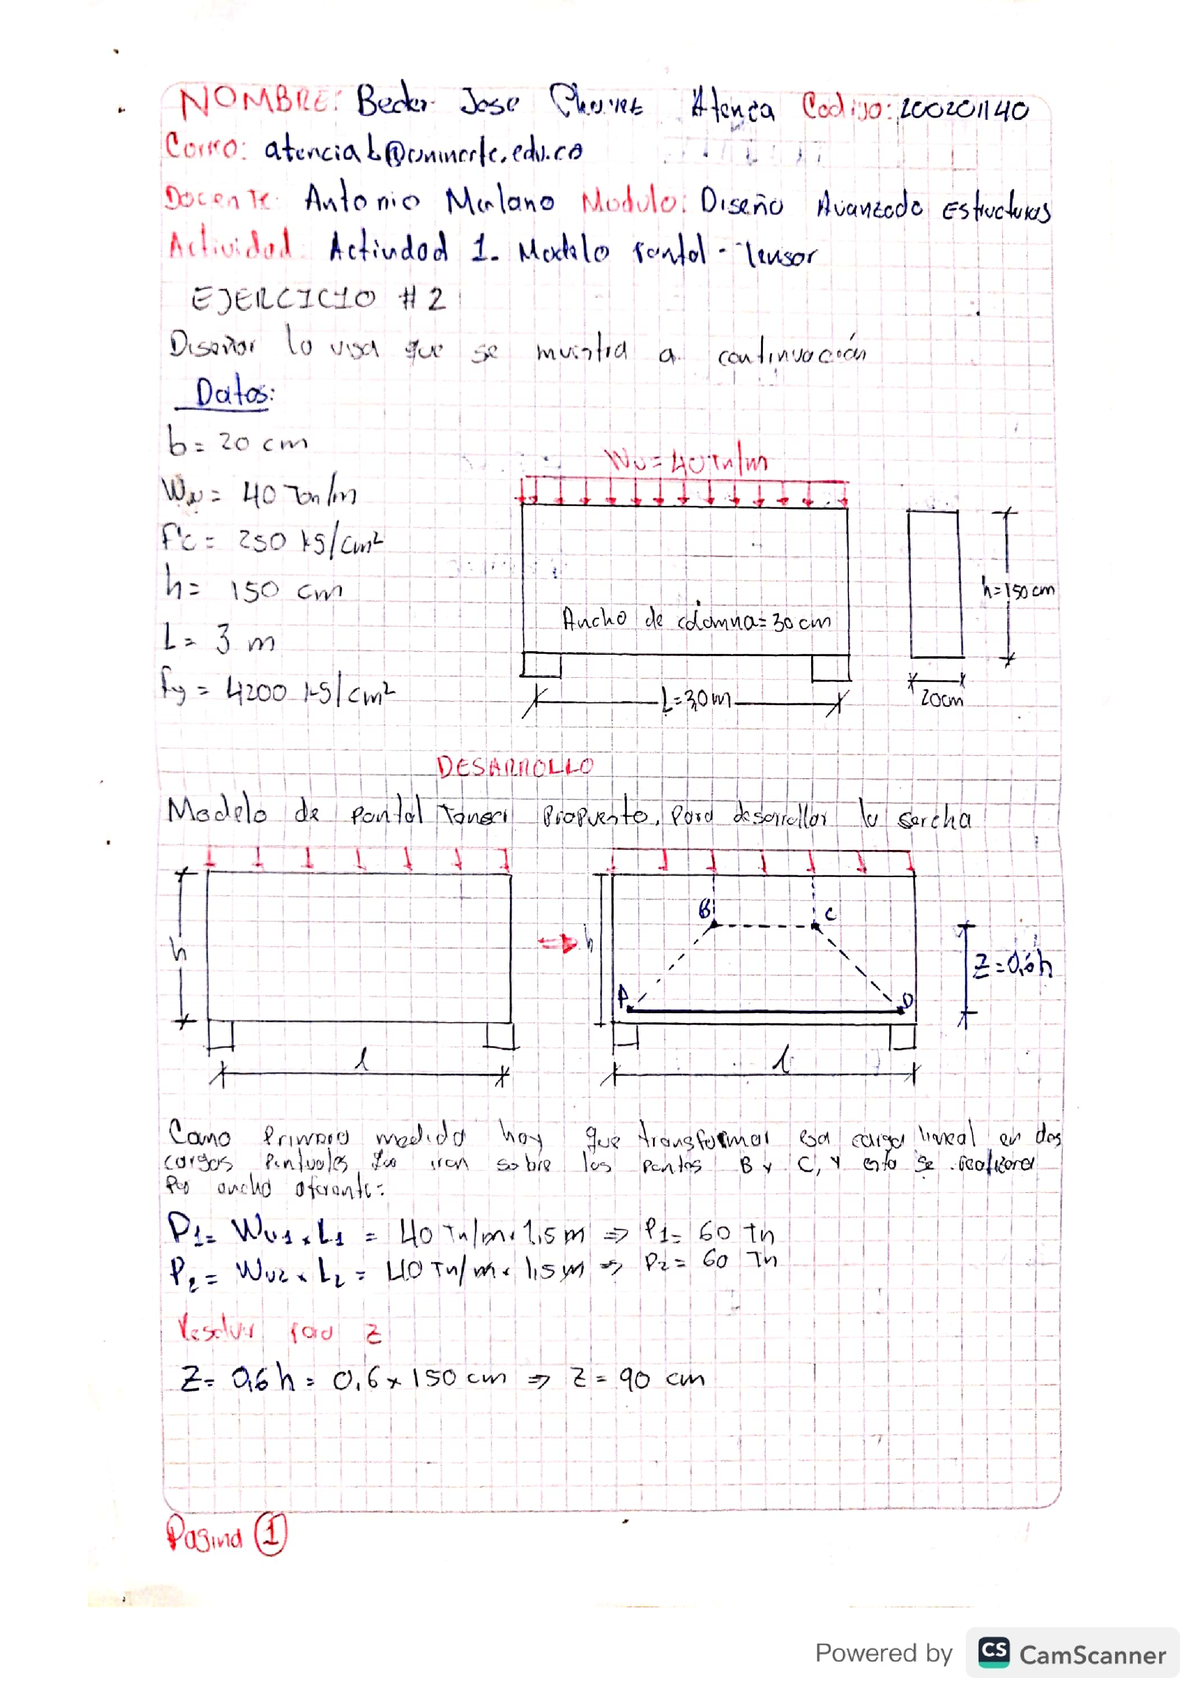 NOMBRE: Beder Jose Atencia Codigo: 200201140
Correo: atenciab@uninorte.edu.co
Docente: Antonio Merlano Modulo: Diseño Avanzado Estructuras
Actividad: Actividad 1. Modelo Puntal - Tensor
EJERCICIO #2
Diseñar la viga que se muestra a continuación
Datos:
b = 20 cm
Wu = 40 Ton/m
f'c = 250 kg/cm²
h = 150 cm
L = 3 m
fy = 4200 kg/cm²
Wu = 40 Tn/m
Ancho de columna = 30 cm
L = 3,0 m
h = 150 cm
20cm
DESARROLLO
Modelo de puntal Tensor Propuesto, para desarrollar la cercha
h
l
h
B
C
A
D
l
Z = 0,6h
Como Primera medida hay que transformar esa carga lineal en dos
cargas Puntuales que iran sobre los puntos B y C, y esto se realizara
Por ancho aferente:
P1 = Wu1 x L1 = 40 Tn/m · 1,5 m ⇒ P1 = 60 Tn
P2 = Wu2 x L2 = 40 Tn/m · 1,5 m ⇒ P2 = 60 Tn
Resolver para Z
Z = 0,6h = 0,6 x 150 cm ⇒ Z = 90 cm
Pagina 1
Powered by CS CamScanner